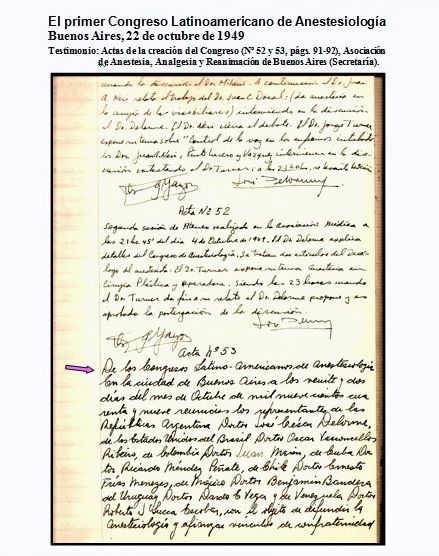 El primer Congreso Latinoamericano de Anestesiología
Buenos Aires, 22 de octubre de 1949
Testimonio: Actas de la creación del Congreso (Nº 52 y 53, págs. 91-92), Asociación
de Anestesia, Analgesia y Reanimación de Buenos Aires (Secretaría).
el Dr. Juan
relata el trabajo del Dr. Juan C. Dosal: (La anestesia en
la cirugía de las vías biliares) interviniendo en la discusión
el Dr. Delorme. El Dr. Nesi cierra el debate. El Dr. Jorge Turner
expone un tema sobre "Control de la voz en los enfermos intubados
los Drs. Juan Nesi, y Vázquez intervienen en la dis-
cusión contestando el Dr. Turner. a las 23 hs. se levanta la sesión
José Delorme
Acta Nº 52
Segunda sesión de Ateneo realizada en la Asociación Médica a
las 21 hs. 45' del día 4 de Octubre de 1949. El Dr. Delorme explica
detalles del Congreso de Anestesiología. Se tratan dos artículos del Decá-
logo del anestesista. El Dr. Turner expone un tema Anestesia en
Cirugía Plástica y Reparadora. Siendo las 23 horas cuando
el Dr. Turner da fin a su relato el Dr. Delorme propone y es
aprobada la postergación de la discusión.
Acta Nº 53
De los Congresos Latino-Americanos de Anestesiología
En la ciudad de Buenos Aires a los veinte y dos
días del mes de Octubre de mil nueve cientos cua
renta y nueve reunidos los representantes de las
Repúblicas Argentina Doctor José César Delorme,
de los Estados Unidos del Brasil Doctor Oscar Vasconcellos
Ribeiro, de Colombia Doctor Juan Marín, de Cuba Doc
tor Ricardo Méndez Peñate, de Chile Doctor Ernesto
Frías Meneses, de México Doctor Benjamín Bandera
del Uruguay Doctor Dardo E. Vega y de Venezuela Doctor
Roberto J. Lucca Escobar, con el objeto de difundir la
Anestesiología y afianzar vínculos de confraternidad